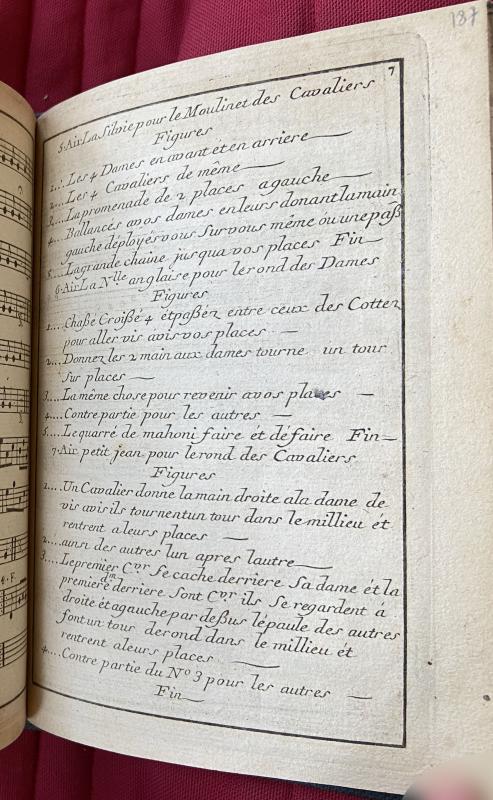 137
7
5.Air La Silvie pour le Moulinet des Cavaliers
Figures
1... Les 4 Dames en avant et en arriere
2... Les 4 Cavaliers de même
3... La promenade de 2 places agauche
4... Ballancés avos dames en leurs donant la main
gauche déployés vous sur vous même ou une paß
5... La grande chaine jusqua vos places Fin
6.Air La N.lle anglaise pour le rond des Dames
Figures
1... Chaße Croißé 4 et paßéz entre ceux des Cottez
pour aller vis avis vos places
2... Donnez les 2 main aux dames tourne un tour
sur places
3... La même chose pour revenir avos places
4... Contre partie pour les autres
5... Le quarré de mahoni faire ét défaire Fin
7.Air petit jean pour le rond des Cavaliers
Figures
1... Un Cavalier donne la main droite ala dame de
vis avis ils tournent un tour dans le millieu ét
rentrent a leurs places
2... ainsi des autres lun apres lautre
3... Le premier C.er se cache derriere Sa dame ét la
premiere d.me derriere Sont C.er ils Se regardent á
droite ét agauche par deßus lépaule des autres
font un tour de rond dans le millieu ét
rentrent a leurs places
4... Contre partie du N.o 3 pour les autres
Fin
4.F.